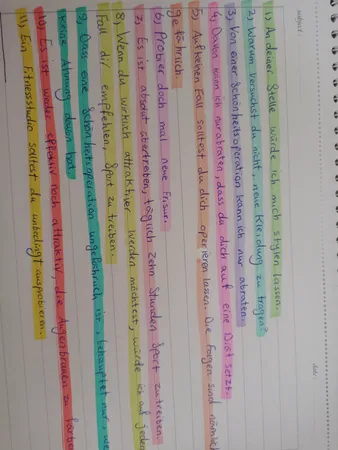 subject:
date:
1) An deiner Stelle würde ich mich stylen lassen.
2) Warum versuchst du nicht, neue Kleidung zu tragen?
3) Von einer Schönheitsoperation kann ich nur abraten.
4) Davon kann ich nur abraten, dass du dich auf eine Diät setzt.
5) Auf keinen Fall solltest du dich operieren lassen. Die Folgen sind nämlich
gefährlich.
6) Probier doch mal neue Frisur.
7) Es ist absolut übertreiben, täglich zehn Stunden Sport zu treiben.
8) Wenn du wirklich attraktiver werden möchtest, würde ich auf jeden
Fall dir empfehlen, Sport zu treiben.
9) Dass eine Schönheitsoperation ungefährlich ist, behauptet nur, we
keine Ahnung davon hat.
10) Es ist weder effektiv noch attraktiv, die Augenbrauen zu färbe
11) Ein Fitnessstudio solltest du unbedingt ausprobieren.